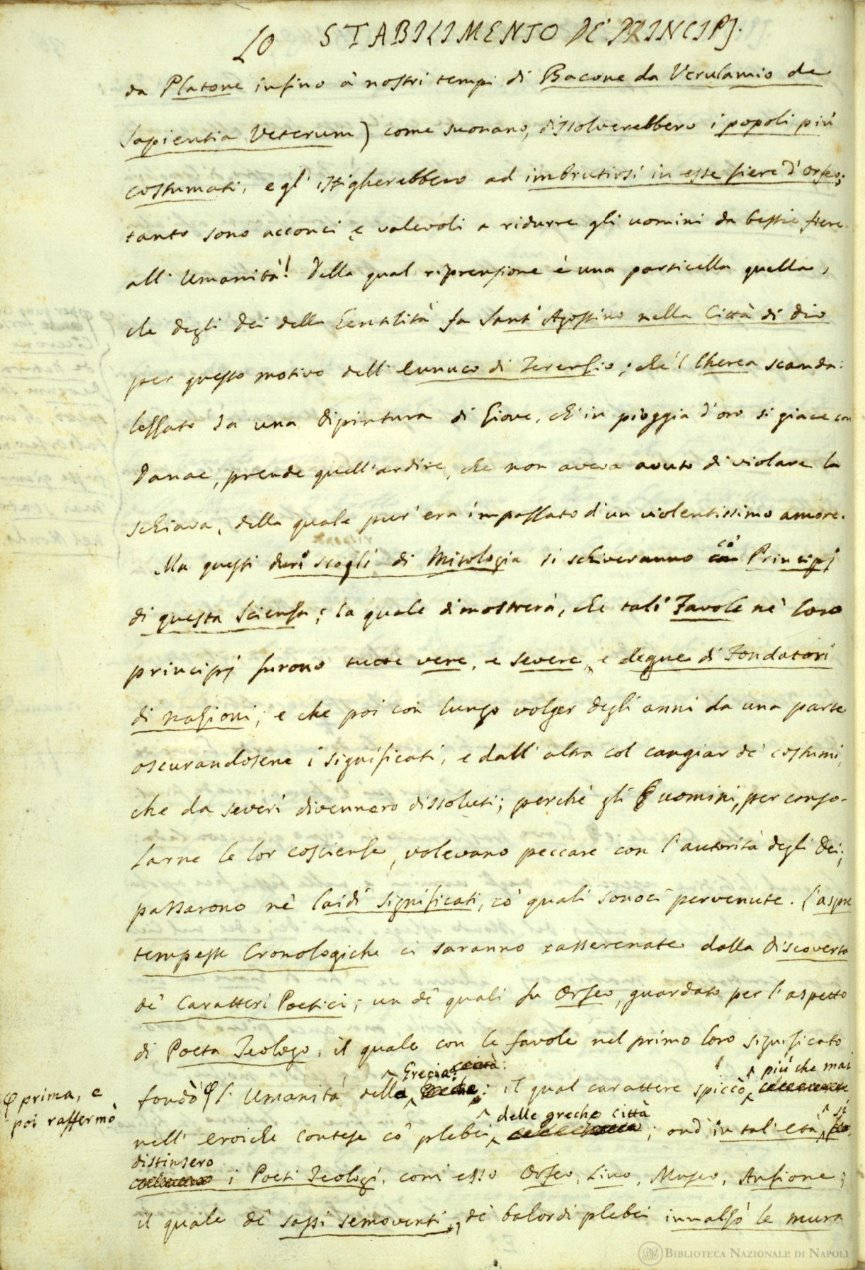 LO STABILIMENTO DE' PRINCIPJ.
da Platone infino à nostri tempi di Bacone da Verulamio de
Sapientia Veterum) come suonano, dissolverebbero i popoli più
costumati, e gl' istigherebbero ad imbrutirsi in esse fiere d'Orfeo;
tanto sono acconci, e valevoli a ridurre gli uomini da bestie fiere
all' Umanità! Della qual riprensione è una particella quella,
che degli Dei della Gentilità fa Sant' Agostino nella Città di Dio
per questo motivo dell' Eunuco di Terenzio; che 'l Cherea scanda:
lezzato da una dipintura di Giove, ch'in pioggia d'oro si giace con
Danae, prende quell'ardire, che non aveva avuto di violare la
schiava, della quale pur' era impazzato d'un violentissimo amore.
Ma questi duri scogli di Mitologia si schiveranno co' Principj
di questa Scienza; la quale dimostrerà, che tali Favole ne' loro
principj furono tutte vere, e severe, e degne di Fondatori
di nazioni; e che poi con lungo volger degli anni da una parte
oscurandosene i significati, e dall' altra col cangiar de' costumi,
che da severi divennero dissoluti; perchè gli uomini, per conso-
larne le lor coscienze, volevano peccare con l'autorità degli Dei;
passarono ne' laidi significati, co' quali sonoci pervenute. L'aspre
tempeste Cronologiche ci saranno rasserenate dalla Discoverta
de' Caratteri Poetici; un de' quali fu Orfeo, guardato per l'aspetto
di Poeta Teologo, il quale con le favole nel primo loro significato
fondò l' Umanità della Grecia: il qual carattere spiccò più che mai
prima, e
poi raffermò
nell' eroiche contese co' plebei delle greche città; ond' in tal età si
distinsero i Poeti Teologi, com' esso Orfeo, Lino, Museo, Anfione;
il quale de' sassi semoventi, de' balordi plebei innalzò le mura
BIBLIOTECA NAZIONALE DI NAPOLI